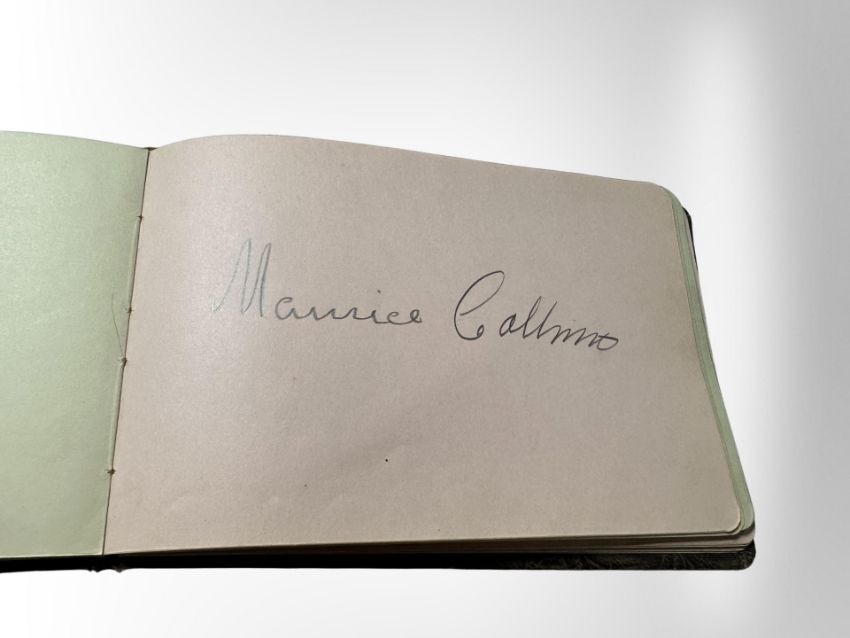 Maurice Collins